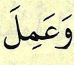 وَعَمِلَ